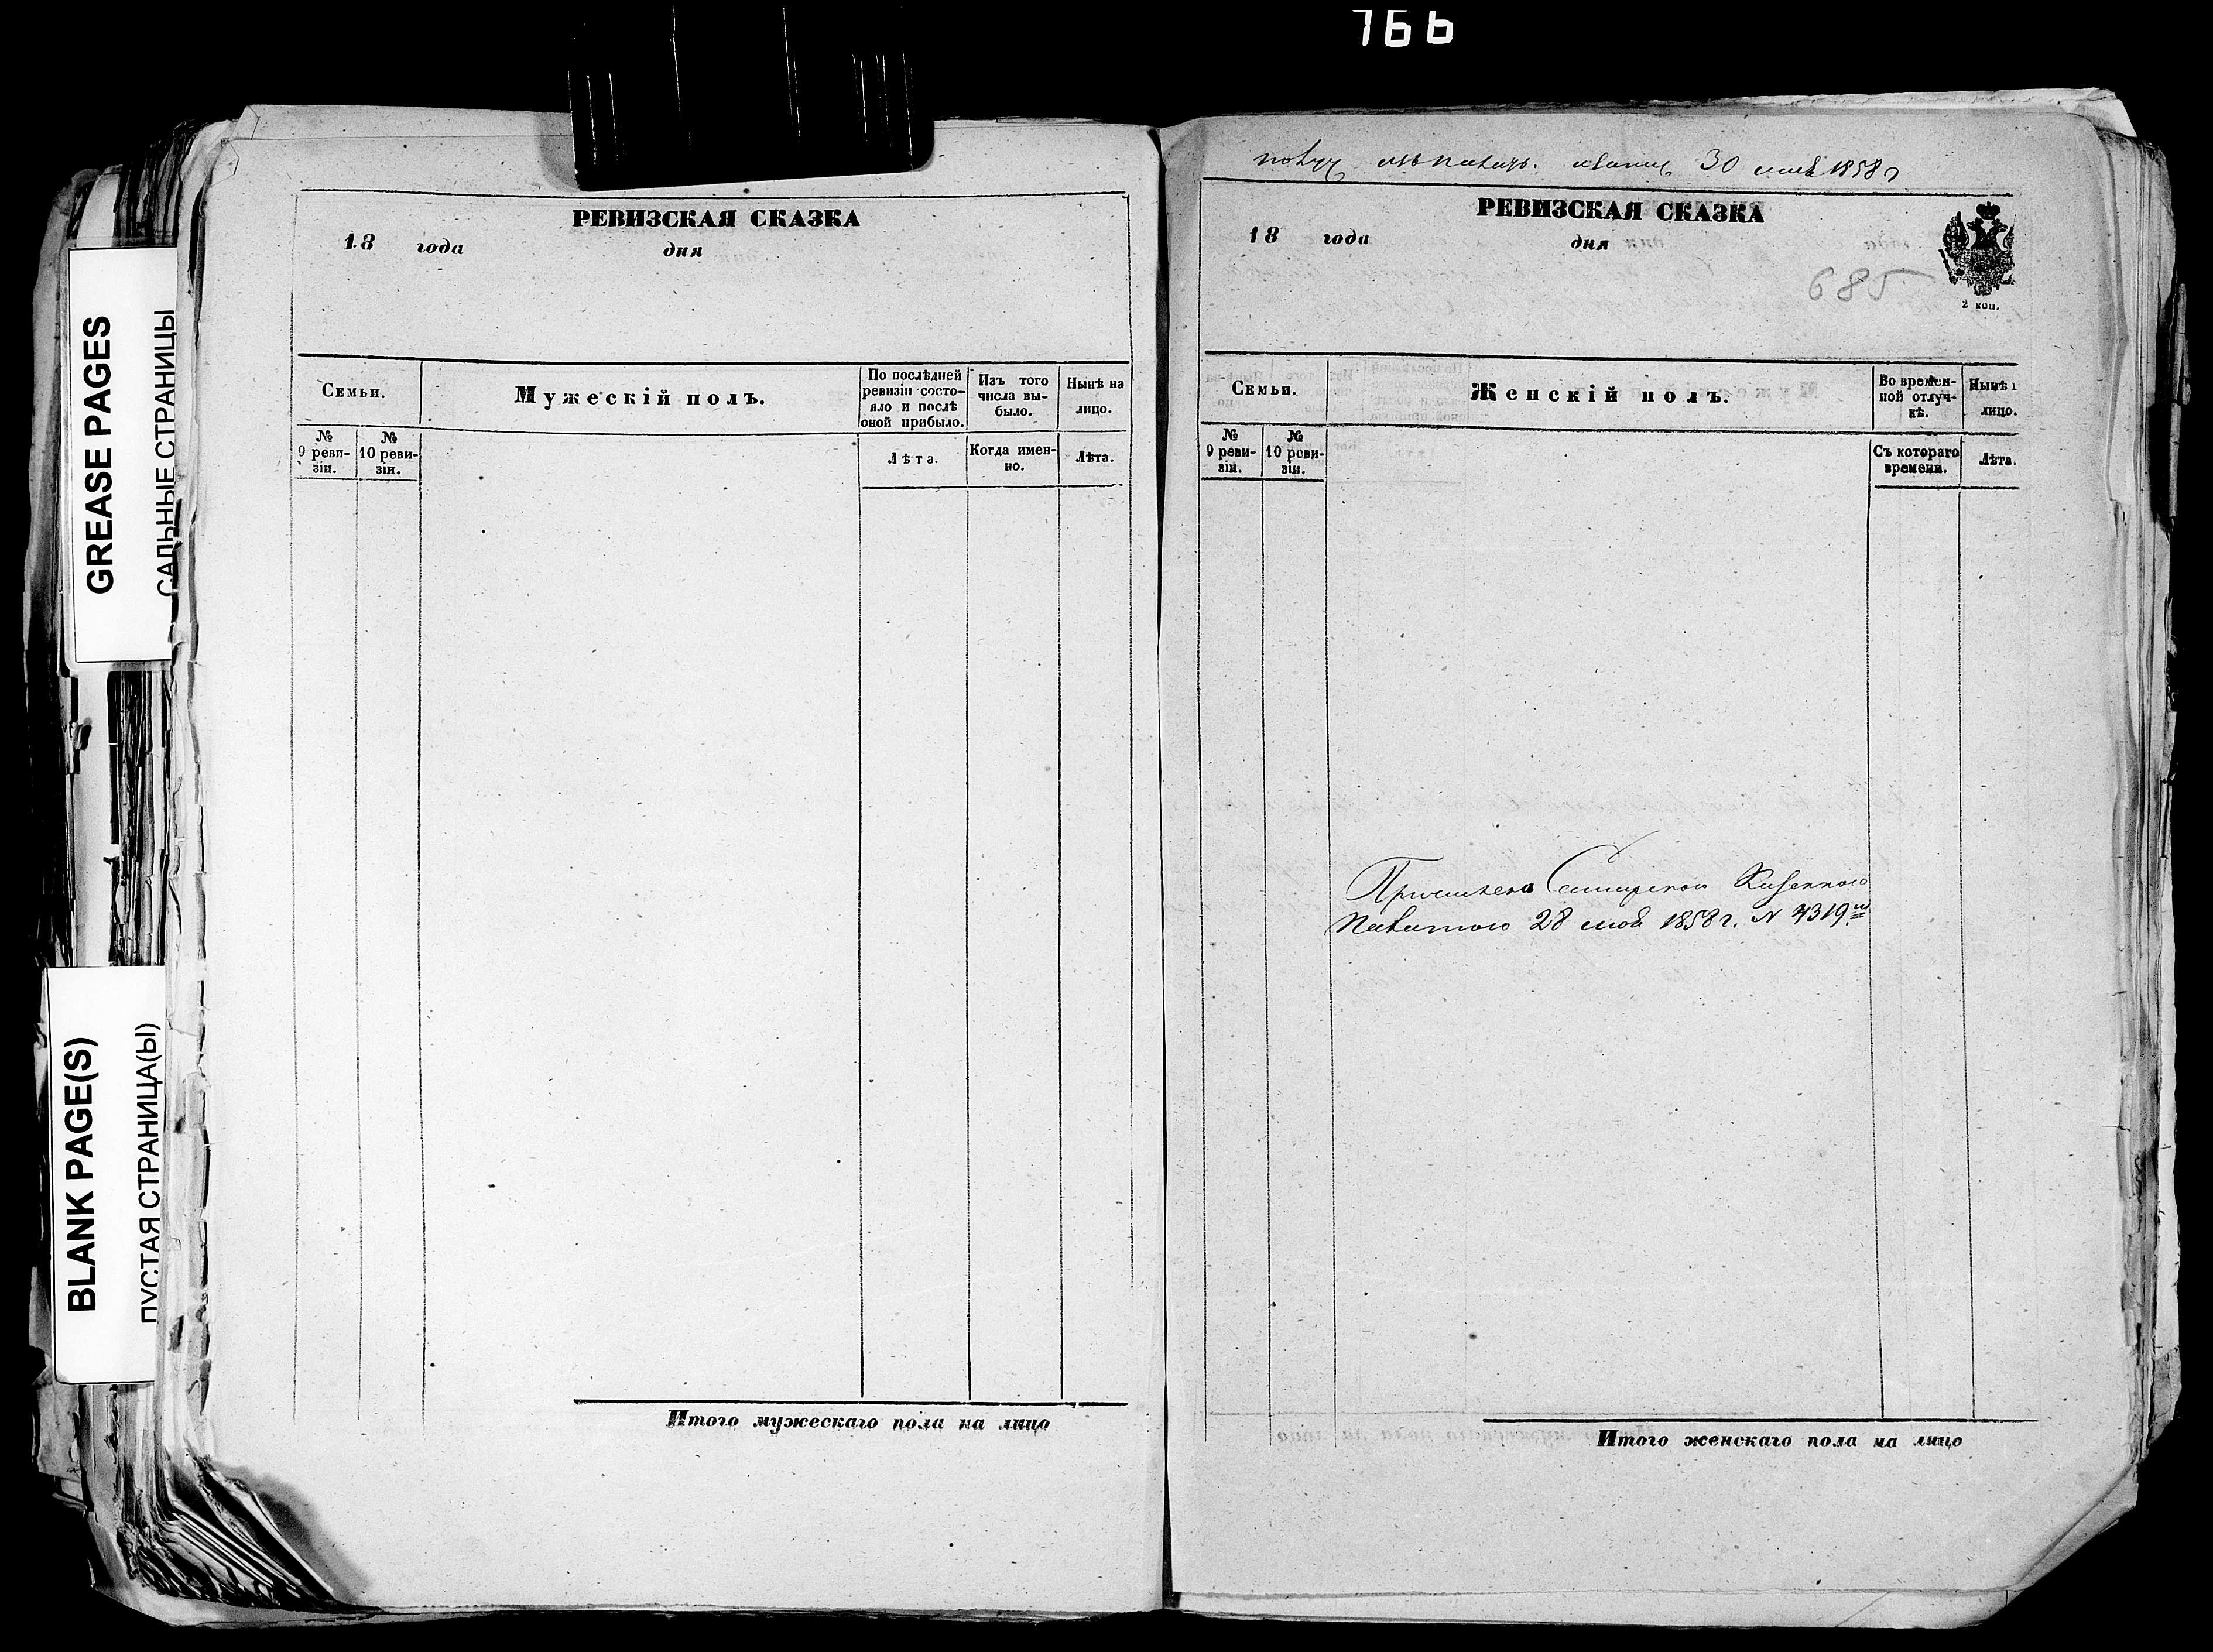 766
GREASE PAGES
САЛЬНЫЕ СТРАНИЦЫ
BLANK PAGE(S)
ПУСТАЯ СТРАНИЦА(Ы)
РЕВИЗСКАЯ СКАЗКА
18 года дня
Семьи.
Мужескій полъ.
По послѣдней
ревизіи состо-
яло и послѣ
оной прибыло.
Изъ того
числа вы-
было.
Нынѣ на
лицо.
№
9 реви-
зіи.
№
10 реви-
зіи.
Лѣта.
Когда имен-
но.
Лѣта.
Итого мужескаго пола на лицо
30 1858
РЕВИЗСКАЯ СКАЗКА
18 года дня
685
2 коп.
Семьи.
Женскій полъ.
Во времен-
ной отлуч-
кѣ.
Нынѣ
лицо.
№
9 реви-
зіи.
№
10 реви-
зіи.
Съ котораго
времени.
Лѣта.
Казенною
Палатою 28 1858 г. N 4319
Итого женскаго пола на лицо